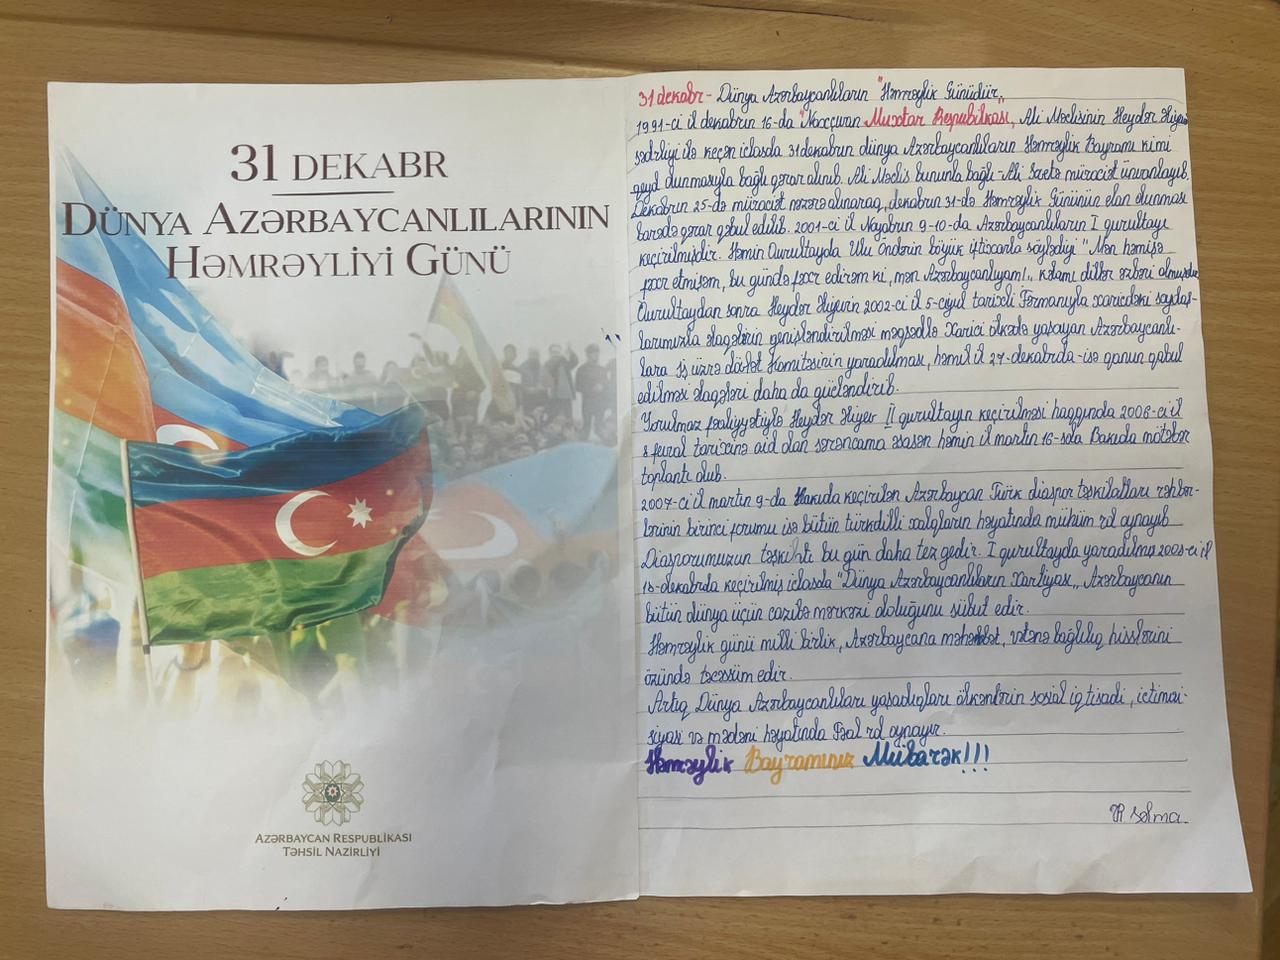 31 DEKABR
DÜNYA AZƏRBAYCANLILARININ
HƏMRƏYLİYİ GÜNÜ
AZƏRBAYCAN RESPUBLİKASI
TƏHSİL NAZİRLİYİ
31 dekabr - Dünya Azərbaycanlıların "Həmrəylik Günüdür„
1991-ci il dekabrın 16-da "Naxçıvan Muxtar RepuBilkası„ Ali Məclisinin Heydər Əliyev
sədrliyi ilə keçən iclasda 31 dekabrın dünya Azərbaycanlıların Həmrəylik Bayramı kimi
qeyd olunmasıyla bağlı qərar alınıb. Ali Məclis bununla bağlı - Ali Sovetə müraciət ünvanlayıb.
Dekabrın 25-də müraciət nəzərə alınaraq, dekabrın 31-də Həmrəylik Gününün elan olunması
barədə qərar qəbul edilib. 2001-ci il Noyabrın 9-10-da Azərbaycanlıların I qurultayı
keçirilmişdir. Həmin Qurultayda Ulu öndərin böyük iftixarla söylədiyi "Mən həmişə
fəxr etmişəm, bu gündə fəxr edirəm ki, mən Azərbaycanlıyam!„ kəlamı dillər əzbəri olmuşdur
Qurultaydan sonra Heydər Əliyevin 2002-ci il 5-iyul tarixli Fərmanıyla xaricdəki soydaş-
larımızla əlaqələrin genişləndirilməsi məqsədilə Xarici ölkədə yaşayan Azərbaycanlı-
lara iş üzrə dövlət Komitəsinin yaradılması, həmil il 27-dekabrda-isə qanun qəbul
edilməsi əlaqələri daha da gücləndirib.
Yorulmaz fəaliyyətiylə Heydər Əliyev II qurultayın keçirilməsi haqqında 2006-cı il
8 fevral tarixinə aid olan sərəncama əsasən həmin il martın 16-sda Bakıda mötəbər
toplantı olub.
2007-ci il martın 9-da Bakıda keçirilən Azərbaycan Türk diaspor təşkilatları rəhbər-
lərinin birinci forumu isə bütün türkdilli xalqların həyatında mühüm rol oynayıb
Diasporumuzun təşkilati bu gün daha tez gedir. I qurultayda yaradılmış il
18-dekabrda keçirilmiş iclasda "Dünya Azərbaycanlıların Xartiyası„ Azərbaycanın
bütün dünya üçün cazibə mərkəzi olduğunu sübut edir.
Həmrəylik günü milli birlik, Azərbaycana məhəbbət, vətənə bağlılıq hisslərini
özündə təcəssüm edir.
Artıq Dünya Azərbaycanlıları yaşadıqları ölkənlərin sosial iqtisadi, ictimai
siyasi və mədəni həyatında Fəal rol oynayır.
Həmrəylik Bayramınız Mübarək!!!
R. Səlma.